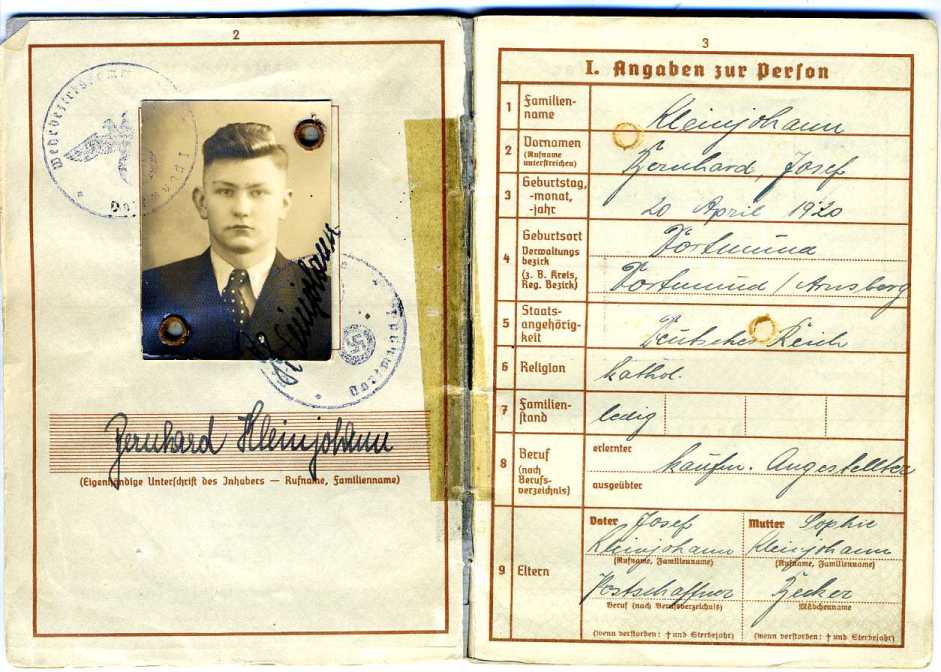 2
Wehrbezirkskommando
Dortmund I
Kleinjohann
Dortmund I
Bernhard Kleinjohann
(Eigenhändige Unterschrift des Inhabers — Rufname, Familienname)
3
I. Angaben zur Person
1 Familien-
name
Kleinjohann
2 Vornamen
(Rufname
unterstreichen)
Bernhard, Josef
3 Geburtstag,
-monat,
-jahr
20 April 1920
4 Geburtsort
Verwaltungs
bezirk
(z. B. Kreis,
Reg. Bezirk)
Dortmund
Dortmund / Arnsberg
5 Staats-
angehörig-
keit
Deutsches Reich
6 Religion
kathol.
7 Familien-
stand
ledig
8 Beruf
(nach
Berufs-
verzeichnis)
erlernter
kaufm. Angestellter
ausgeübter
9 Eltern
Vater Josef
Kleinjohann
(Rufname, Familienname)
Postschaffner
Beruf (nach Berufsverzeichnis)
(wenn verstorben: † und Sterbejahr)
Mutter Sophie
Kleinjohann
(Rufname, Familienname)
Becker
Mädchenname
(wenn verstorben: † und Sterbejahr)